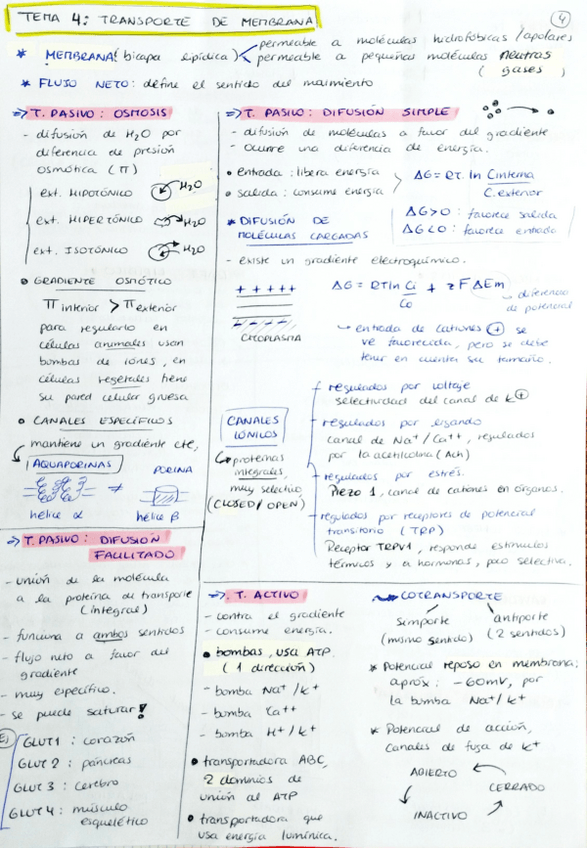 TEMA 4: TRANSPORTE DE MEMBRANA
4
* MEMBRANA (bicapa lipídica)
permeable a moléculas hidrofóbicas / apolares
permeable a pequeñas moléculas neutras
(gases)
* FLUJO NETO: define el sentido del movimiento
⇒ T. PASIVO: OSMOSIS
- difusión de H2O por
diferencia de presión
osmótica (π)
ext. HIPOTÓNICO H2O
ext. HIPERTÓNICO H2O
ext. ISOTÓNICO H2O
• GRADIENTE OSMÓTICO
π interior > π exterior
para regularlo en
células animales usan
bombas de iones, en
células vegetales tiene
su pared celular gruesa
• CANALES ESPECÍFICOS
mantiene un gradiente cte,
AQUAPORINAS
PORINA
≠
hélice α
hélice β
⇒ T. PASIVO: DIFUSIÓN SIMPLE
- difusión de moléculas a favor del gradiente
- ocurre una diferencia de energía.
• entrada: libera energía
• salida: consume energía
ΔG = RT. ln Cinterna
C.exterior
ΔG>0: favorece salida
ΔG<0: favorece entrada
* DIFUSIÓN DE
MOLÉCULAS CARGADAS
- existe un gradiente electroquímico.
+ + + + +
CITOPLASMA
ΔG = RTln Ci + zFΔEm
Co
diferencia
de potencial
entrada de cationes + se
ve favorecida, pero se debe
tener en cuenta su tamaño.
CANALES
IÓNICOS
proteínas
integrales,
muy selectivo
(CLOSED/OPEN)
- regulados por voltaje
selectividad del canal de K+
- regulados por ligando
canal de Na+/Ca++, regulados
por la acetilcolina (Ach)
- regulados por estrés.
Piezo 1, canal de cationes en órganos.
- regulados por receptores de potencial
transitorio (TRP)
Receptor TRPV1, responde estímulos
térmicos y a hormonas, poco selectiva.
⇒ T. PASIVO: DIFUSIÓN
FACILITADO
- unión de la molécula
a la proteína de transporte
(integral)
- funciona a ambos sentidos
- flujo neto a favor del
gradiente
- muy específico.
- se puede saturar!
Ej
GLUT1: corazón
GLUT2: páncreas
GLUT3: cerebro
GLUT4: músculo
esquelético
⇒ T. ACTIVO
- contra el gradiente
- consume energía.
• bombas, usa ATP.
(1 dirección)
- bomba Na+/K+
- bomba Ca++
- bomba H+/K+
• transportadora ABC,
2 dominios de
unión al ATP
• transportadora que
usa energía lumínica.
COTRANSPORTE
simporte
(mismo sentido)
antiporte
(2 sentidos)
* Potencial reposo en membrana:
aprox: -60mV, por
la bomba Na+/K+
* Potencial de acción,
canales de fuga de K+
ABIERTO
CERRADO
INACTIVO